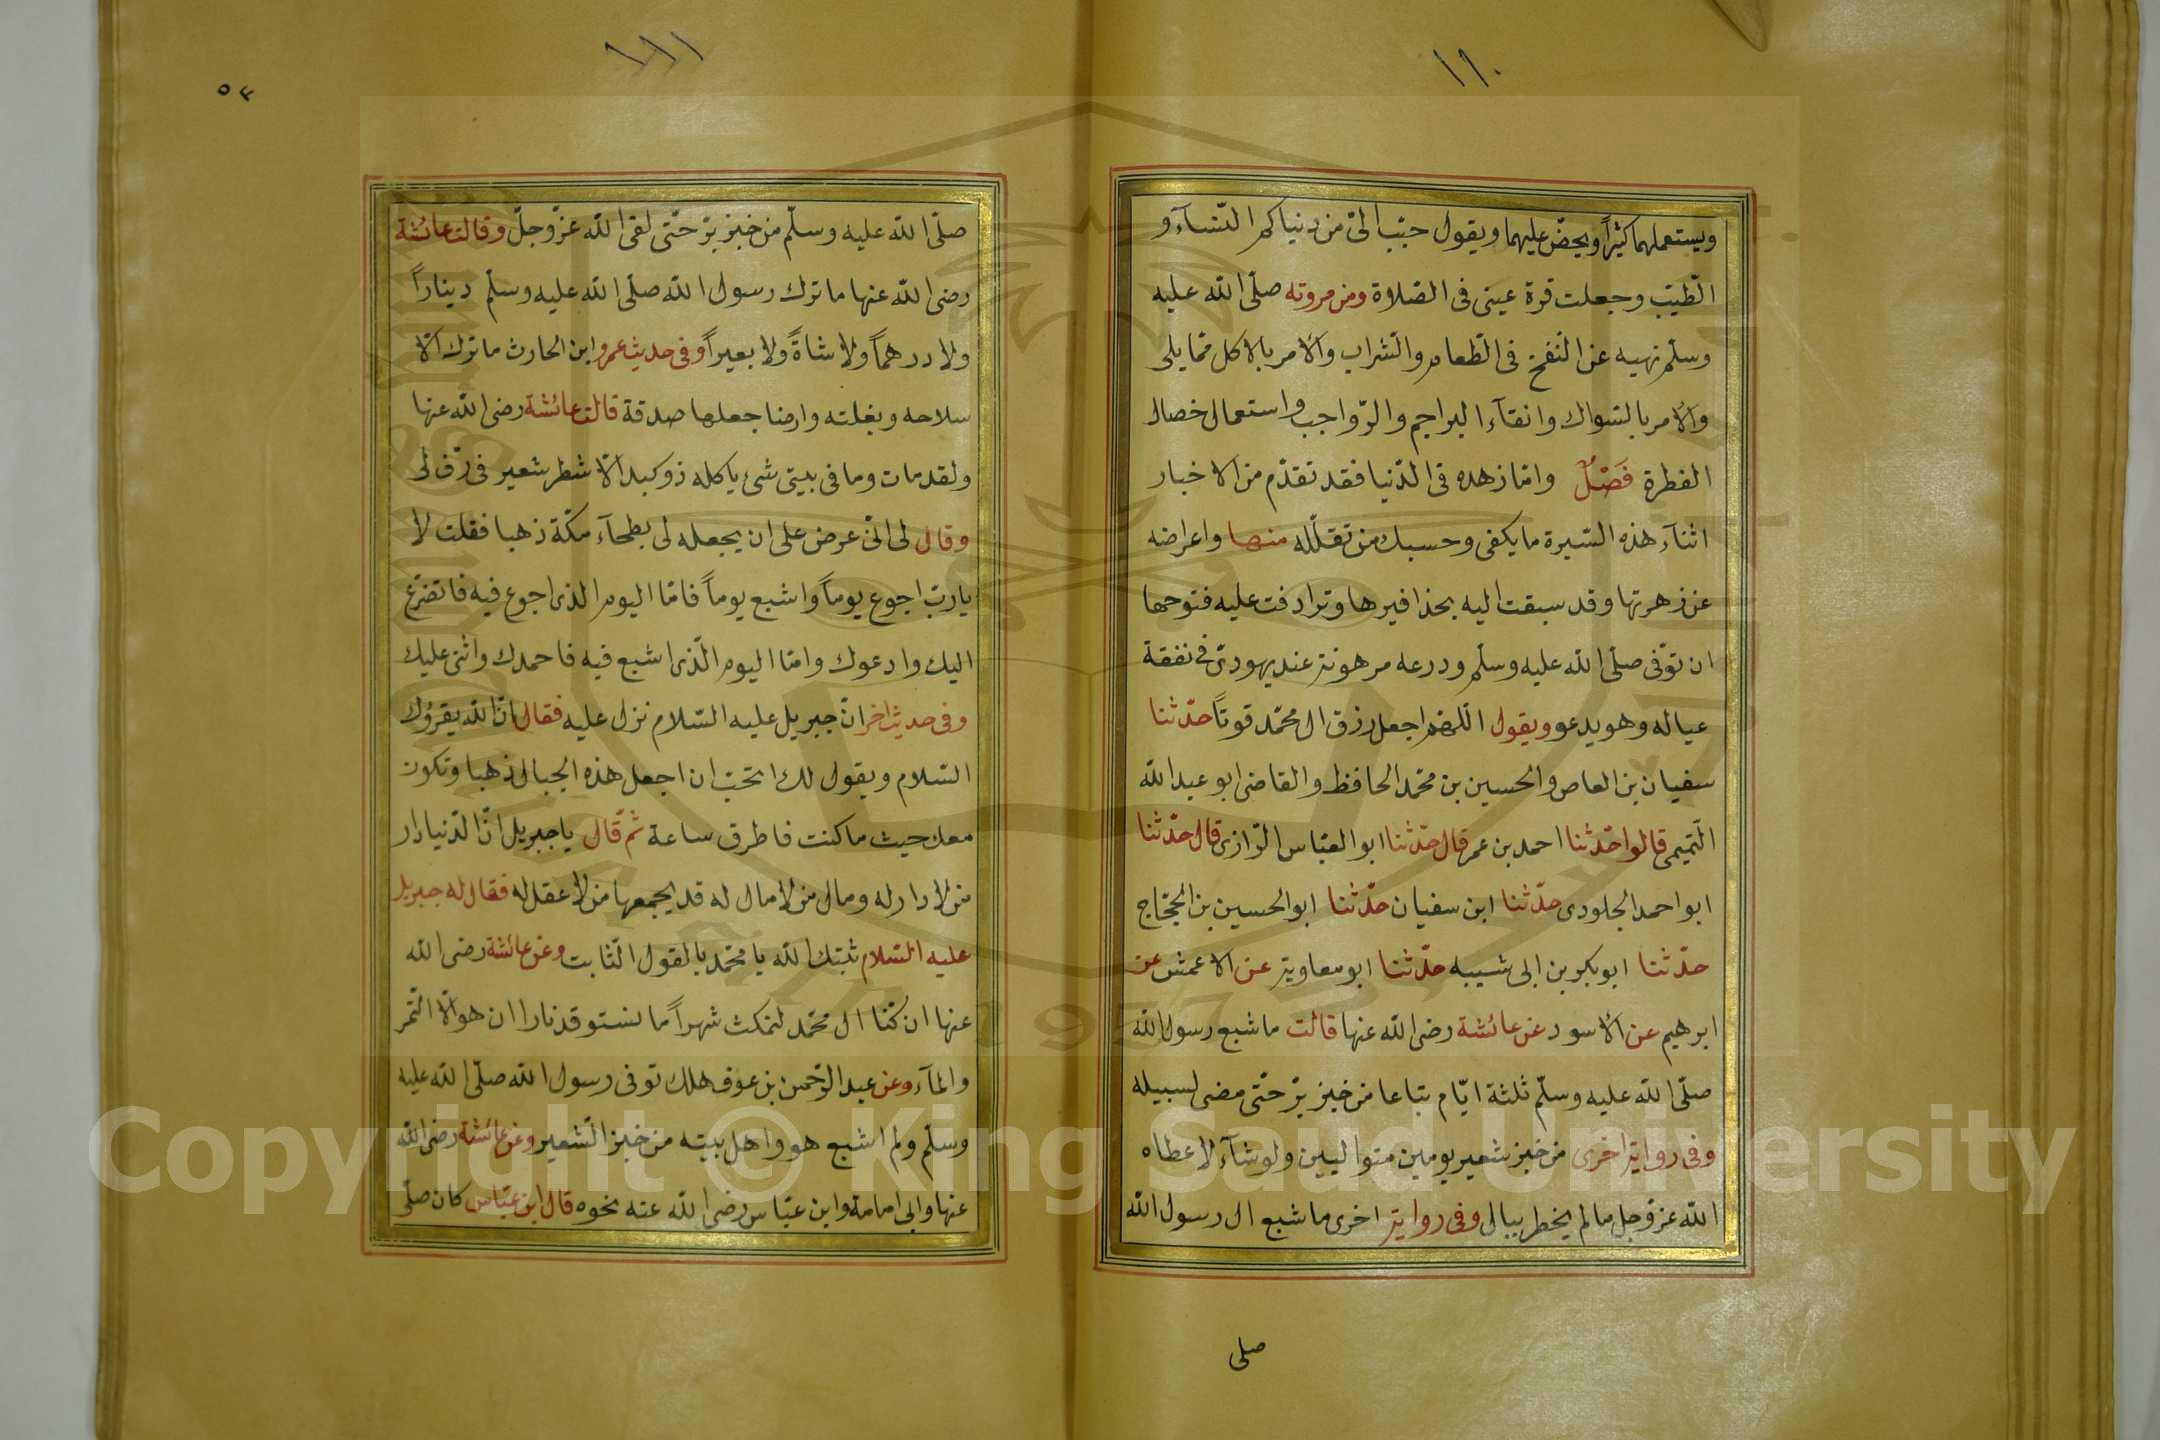 ١١٠
ويستعملهما كثيراً ويحضّ عليهما ويقول حبّب الىّ من دنياكم النّسآء و
الطّيب وجعلت قرة عينى فى الصّلاة ومن مروته صلّى الله عليه
وسلّم نهيه عن النّفخ فى الطّعام والشّراب والامر بالاكل ممّا يلى
والامر بالسّواك وانقآء البراجم والرّواجب واستعمال خصال
الفطرة فَصْلٌ وامّا زهده فى الدّنيا فقد تقدّم من الاخبار
اثنآء هذه السّيرة ما يكفى وحسبك من تقلّله منها واعراضه
عن زهرتها وقد سبقت اليه بحذافيرها وترادفت عليه فتوحها
ان توّفى صلّى الله عليه وسلّم ودرعه مرهونة عند يهودىّ فى نفقة
عياله وهو يدعو ويقول اللّهمّ اجعل رزق ال محمّد قوتاً حدّثنا
سفيان بن العاص والحسين بن محمّد الحافظ والقاضى ابو عبد الله
التّميمى قالوا حدّثنا احمد بن عمر قال حدّثنا ابو العبّاس الرّازى قال حدّثنا
ابو احمد الجلودى حدّثنا ابن سفيان حدّثنا ابو الحسين بن الحجّاج
حدّثنا ابو بكر بن ابى شيبه حدّثنا ابو معاوية عن الاعمش عن
ابرهيم عن الاسود عن عائشة رضى الله عنها قالت ما شبع رسول الله
صلّى الله عليه وسلّم ثلثة ايّام تباعا من خبز برّ حتّى مضى لسبيله
وفى رواية اخرى من خبز شعير يومين متواليين ولو شآء لاعطاه
الله عزّ وجل ما لم يخطر ببال وفى رواية اخرى ما شبع ال رسول الله
صلى
١١١
٥٣
صلّى الله عليه وسلّم من خبز برّ حتّى لقى الله عزّ وجلّ وقالت عائشة
رضى الله عنها ما ترك رسول الله صلّى الله عليه وسلّم ديناراً
ولا درهماً ولا شاةً ولا بعيراً وفى حديث عمرو ابن الحارث ما ترك الّا
سلاحه وبغلته وارضا جعلها صدقة قالت عائشة رضى الله عنها
ولقد مات وما فى بيتى شئ ياكله ذو كبد الّا شطر شعير فى رّف لى
وقال لى انّى عرض على ان يجعله لى بطحآء مكّة ذهبا فقلت لا
يا ربّ اجوع يوماً واشبع يوماً فامّا اليوم الذى اجوع فيه فاتضرّع
اليك وادعوك وامّا اليوم الّذى اشبع فيه فاحمدك واثنى عليك
وفى حديث اخر انّ جبريل عليه السّلام نزل عليه فقال انّ الله يقرؤك
السّلام ويقول لك اتحبّ ان اجعل هذه الجبال ذهبا وتكون
معك حيث ما كنت فاطرق ساعة ثمّ قال يا جبريل انّ الدّنيا دار
من لا دار له ومال من لا مال له قد يجمعها من لا عقل له فقال له جبريل
عليه السّلام ثبّتك الله يا محمّد بالقول الثّابت وعن عائشة رضى الله
عنها ان كنّا ال محمّد لنمكث شهراً ما نستوقد نارا ان هو الّا التّمر
والمآء وعن عبد الرّحمن بن عوف هلك توفى رسول الله صلّى الله عليه
وسلّم ولم اشبع هو واهل بيته من خبز الشّعير وعن عائشة رضى الله
عنها وابى امامة وابن عبّاس رضى الله عنه نحوه قال ابن عبّاس كان صلّى
Copyright © King Saud University